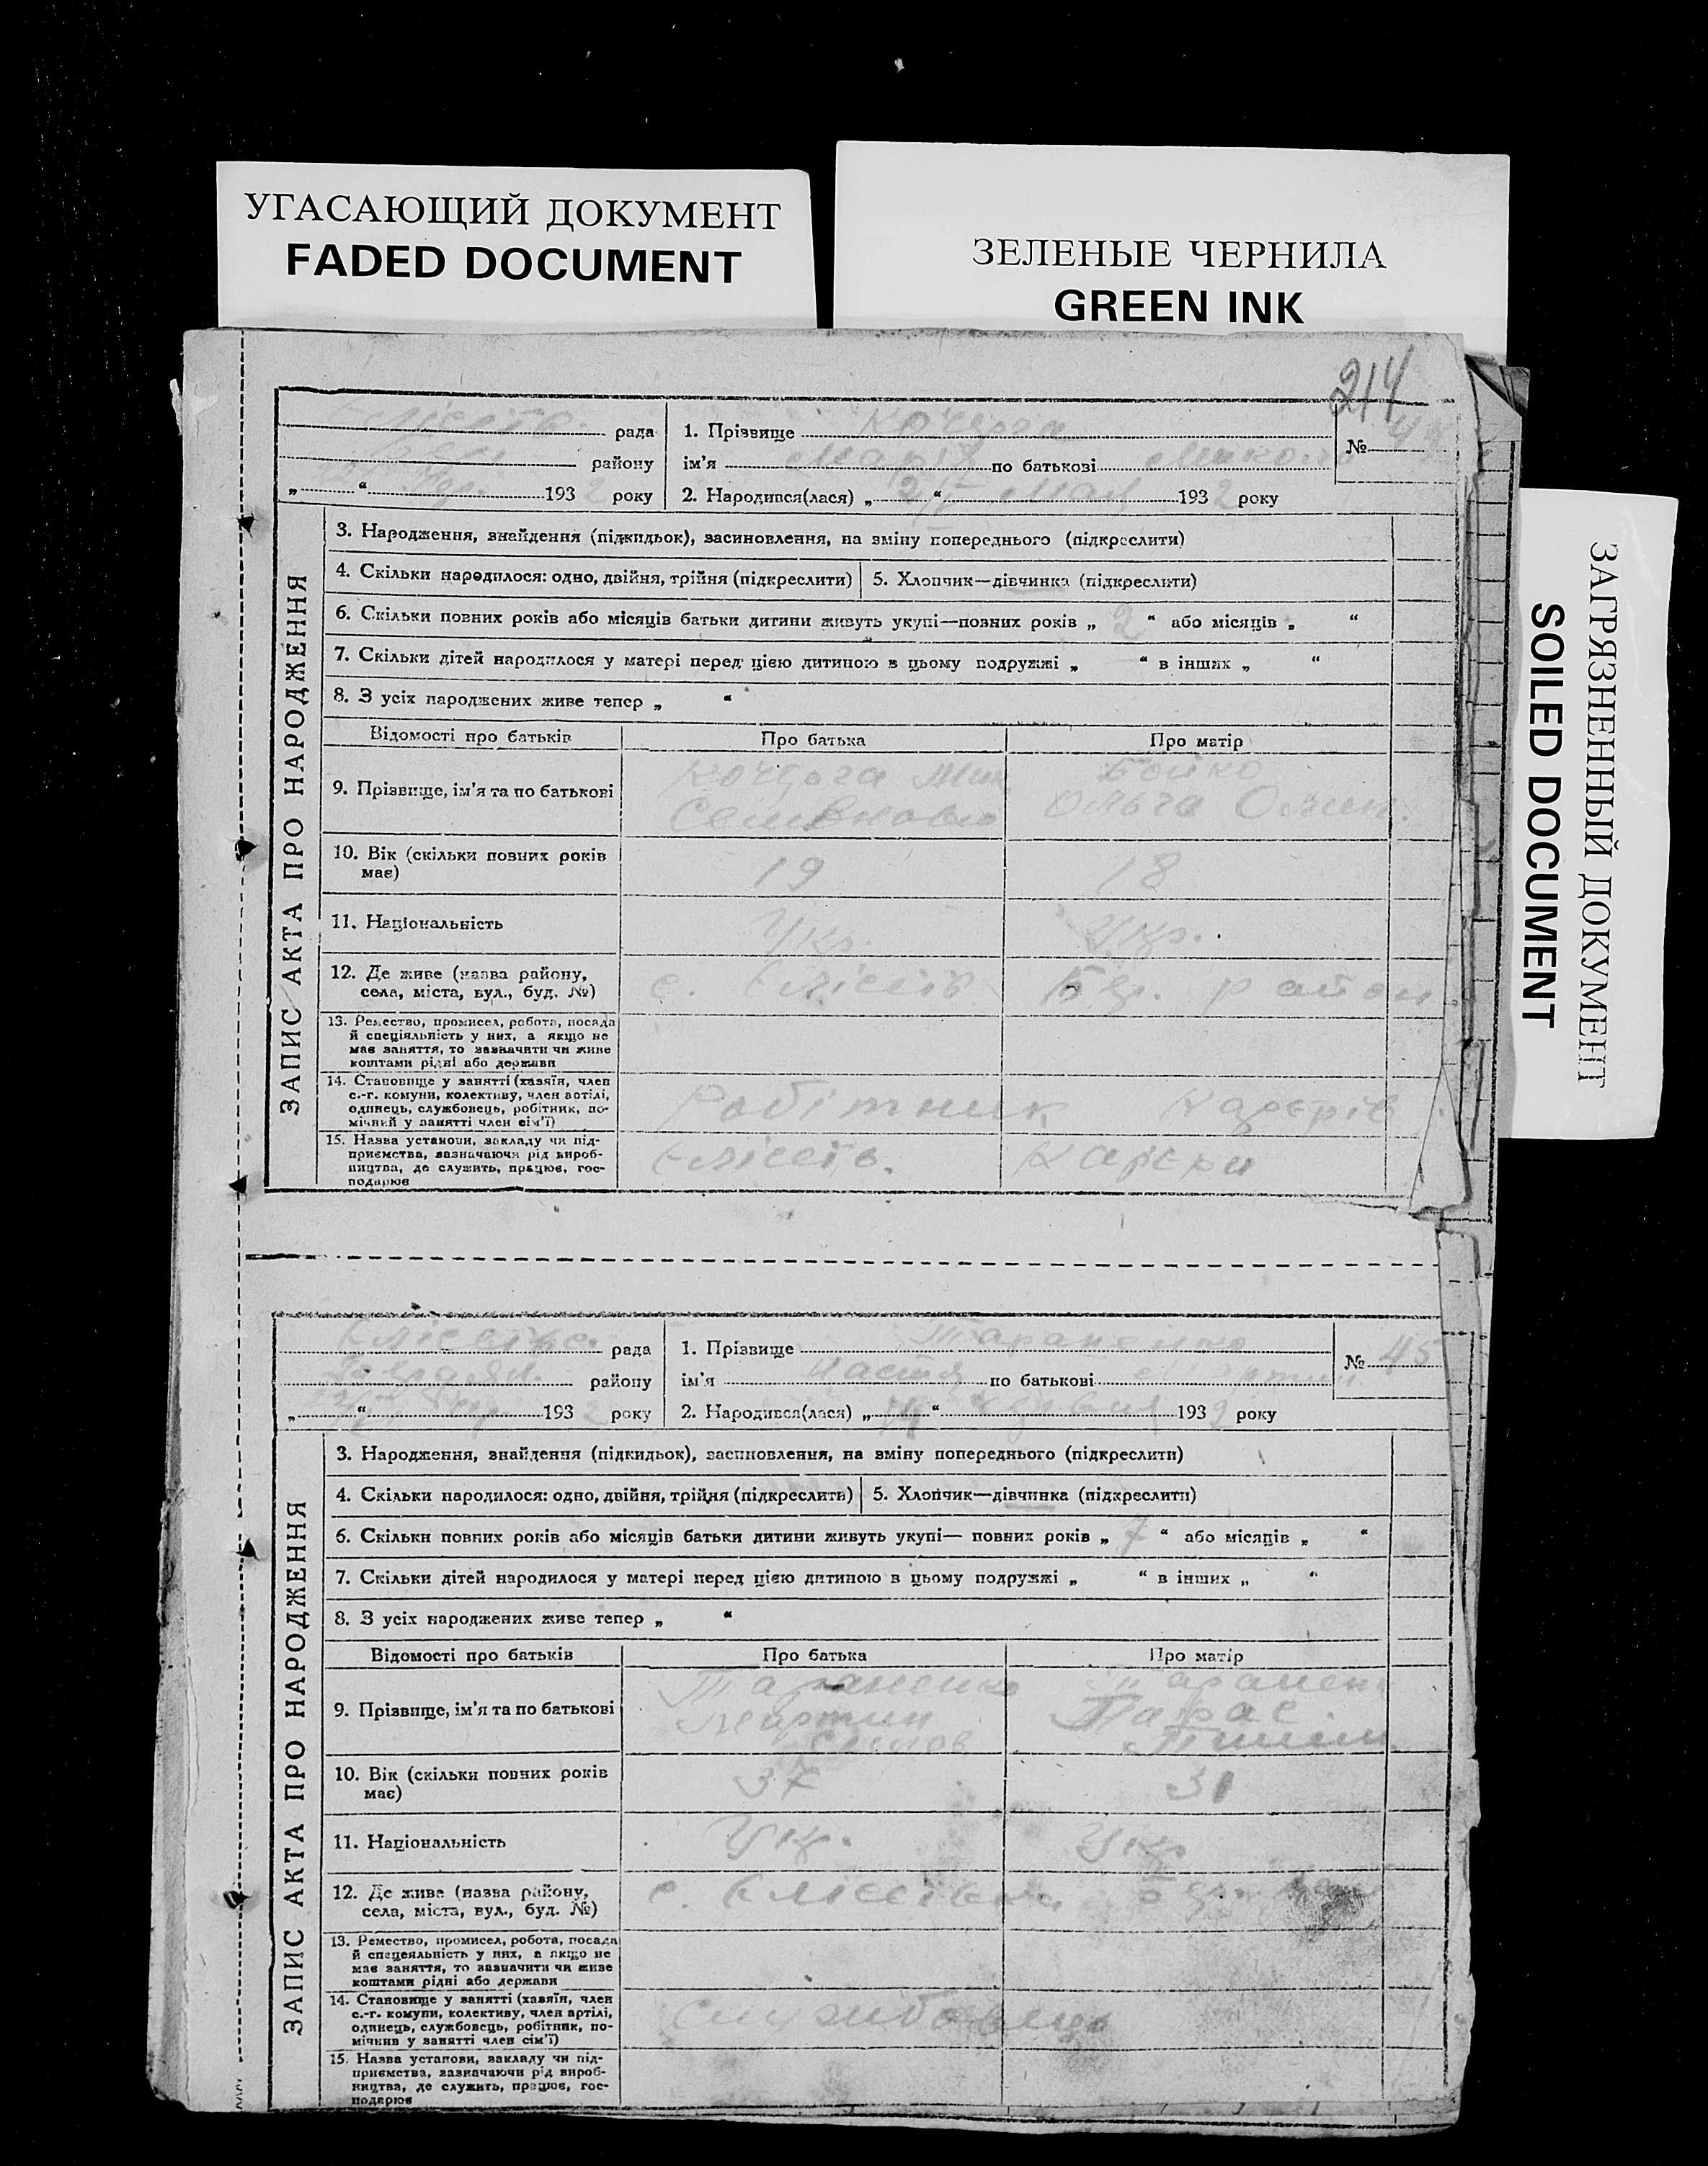 УГАСАЮЩИЙ ДОКУМЕНТ
FADED DOCUMENT
ЗЕЛЕНЫЕ ЧЕРНИЛА
GREEN INK
ЗАГРЯЗНЕННЫЙ ДОКУМЕНТ
SOILED DOCUMENT
214
рада
району
„ “ 1932 року
1. Прізвище Кочерга
ім'я Марія по батькові Микол
2. Народився(лася) „ “ мая 1932 року
№ 44
ЗАПИС АКТА ПРО НАРОДЖЕННЯ
3. Народження, знайдення (підкидьок), засиновлення, на зміну попереднього (підкреслити)
4. Скільки народилося: одно, двійня, трійня (підкреслити)
5. Хлопчик—дівчинка (підкреслити)
6. Скільки повних років або місяців батьки дитини живуть укупі—повних років „ 2 “ або місяців „ “
7. Скільки дітей народилося у матері перед цією дитиною в цьому подружжі „ “ в інших „ “
8. З усіх народжених живе тепер „ “
Відомості про батьків Про батька Про матір
9. Прізвище, ім'я та по батькові
Кочерга Мик. Бойко
Ольга
10. Вік (скільки повних років має) 19 18
11. Національність Укр. Укр.
12. Де живе (назва району, села, міста, вул., буд. №)
с. Єлісеїв Бер. район
13. Ремество, промисел, робота, посада
й спеціяльність у них, а якщо не
має заняття, то зазначити чи живе
коштами рідні або держави
14. Становище у занятті (хазяїн, член
с.-г. комуни, колективу, член артілі,
одинець, службовець, робітник, по-
мічний у занятті член сім'ї)
Робітник Карєрів
15. Назва установи, закладу чи під-
приємства, зазначаючи рід вироб-
ництва, де служить, працює, гос-
подарює
Єлісеїв. Карєри
рада
району
„ “ 1932 року
1. Прізвище Тараненко
ім'я Настя по батькові Мартин
2. Народився(лася) „14“ червня 1932 року
№ 45
ЗАПИС АКТА ПРО НАРОДЖЕННЯ
3. Народження, знайдення (підкидьок), засиновлення, на зміну попереднього (підкреслити)
4. Скільки народилося: одно, двійня, трійня (підкреслити)
5. Хлопчик—дівчинка (підкреслити)
6. Скільки повних років або місяців батьки дитини живуть укупі— повних років „ 7 “ або місяців „ “
7. Скільки дітей народилося у матері перед цією дитиною в цьому подружжі „ “ в інших „ “
8. З усіх народжених живе тепер „ “
Відомості про батьків Про батька Про матір
9. Прізвище, ім'я та по батькові
Тараненко Таранен
Мартин Парас
10. Вік (скільки повних років має) 37 31
11. Національність Укр. Укр
12. Де живе (назва району, села, міста, вул., буд. №)
с. Єлісеївка
13. Ремество, промисел, робота, посада
й спецеяльність у них, а якщо не
має заняття, то зазначити чи живе
коштами рідні або держави
14. Становище у занятті (хазяїн, член
с.-г. комуни, колективу, член артілі,
одинець, службовець, робітник, по-
мічнив у занятті член сім'ї)
службовець
15. Назва установи, закладу чи під-
приємства, зазначаючи рід вироб-
ництва, де служить, працює, гос-
подарює